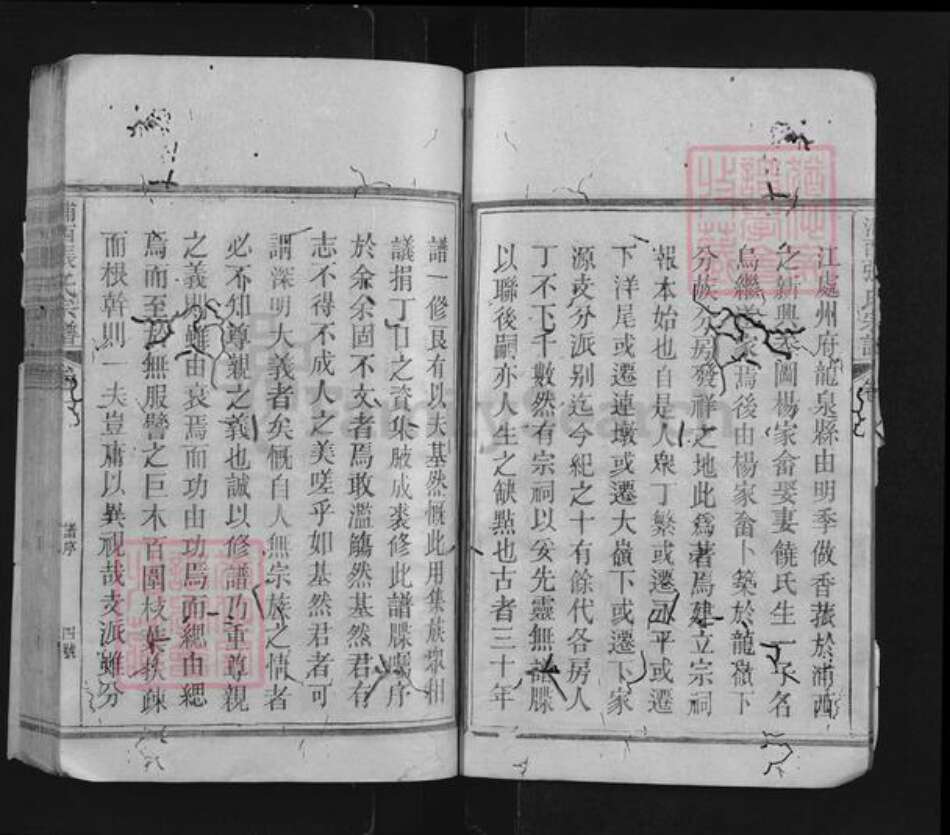 江處州府龍泉縣由明季做香蕈於浦西
之新興六圖楊家畲娶妻饒氏生一子名
烏繼 家焉後由楊家畲卜築於龍嶺下
分族分房發祥之地此為著焉建立宗祠
報本始也自是人衆丁繁或遷 平或遷
下洋尾或遷連墩或遷大嶺下或遷下家
源支分派别迄今紀之十有餘代各房人
丁不下千數然有宗祠以妥先靈無譜牒
以聯後嗣亦人生之缺點也古者三十年
譜一修良有以夫基然慨此用集族衆相
議捐丁口之資集腋成裘修此譜牒囑序
於余余固不文者焉敢濫觴然基然君有
志不得不成人之美嗟乎如基然君者可
謂深明大義者矣慨自人無宗族之情者
必不知尊親之義也誠以修譜乃重尊親
之義則雖由衰焉而功由功焉而緦由緦
焉而至於無服譬之巨木百圍枝葉扶疎
而根幹則一夫豈庸以異視哉支派雖分
浦西張氏宗譜
譜序
四號